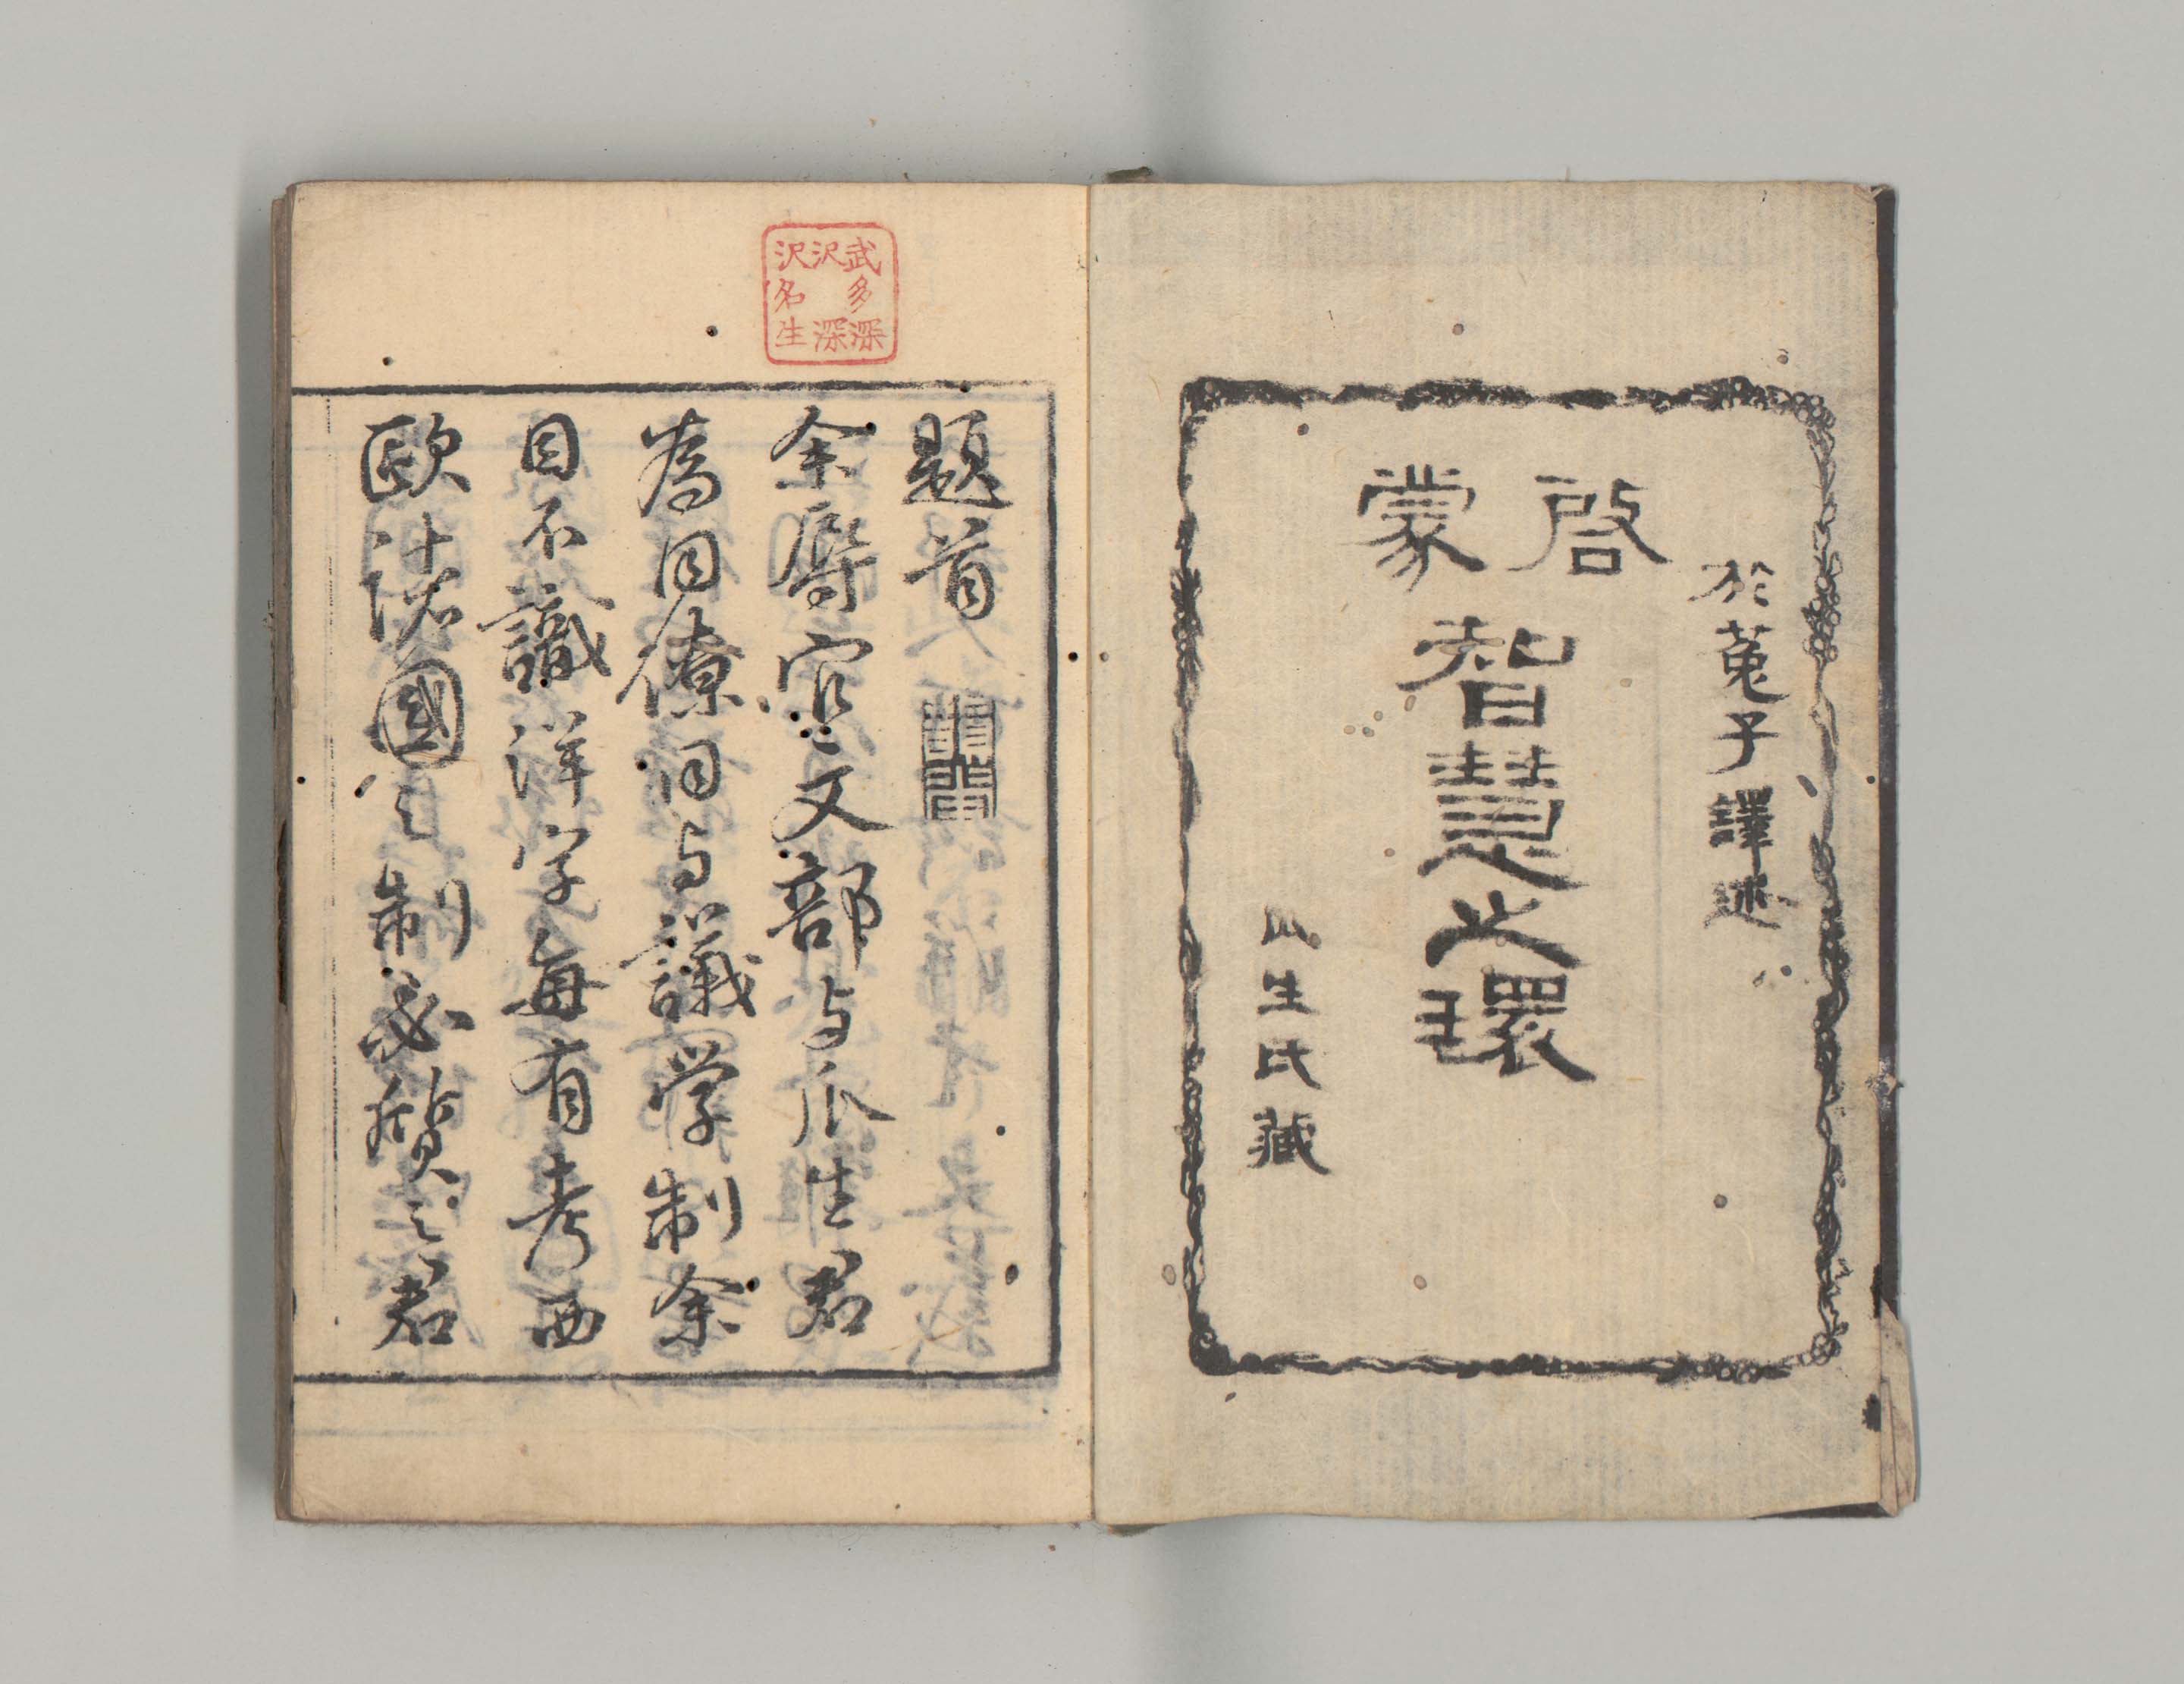 於菟子譯述
啓蒙
智慧之環
瓜生氏藏
武多深
沢深
沢名生
題首
余辱官文部与瓜生君
為同僚同与議学制余
目不識洋字毎有考西
欧諸國之制必質之君